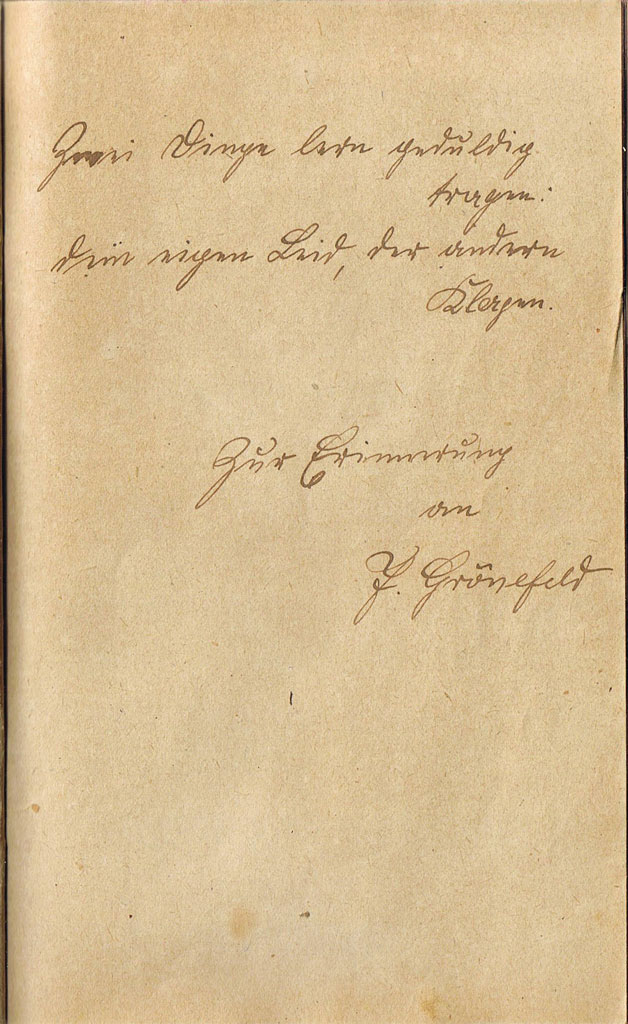 Zwei Dinge lern geduldig
tragen:
dein eigen Leid, der andern
Klagen.
Zur Erinnerung
an
P. Grönefeld